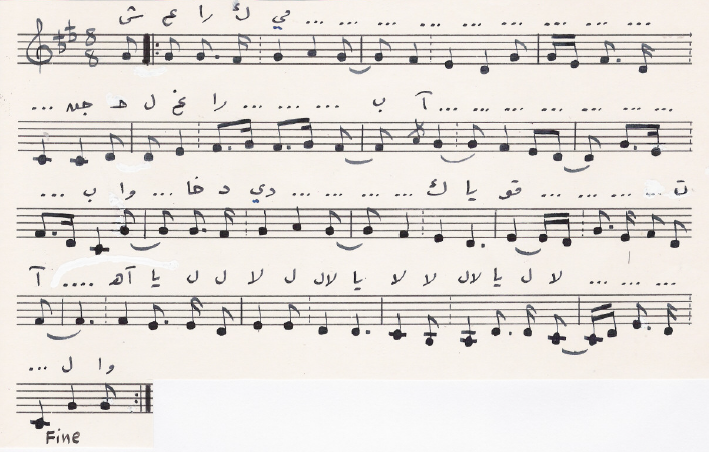 8
8
ش ع را ك في ... ... ... ... ... ... ...
... ل غ را ... ... ... ب آ ... ... ... ... ... ... ...
... ب وا ... خا د دي ... ... ... ... ك يا قو ... ... ... ... ت
آ .... آهـ يا ل ل لا ل لال يا لا لا لال يا ل لا ... ... ...
... ل وا
Fine